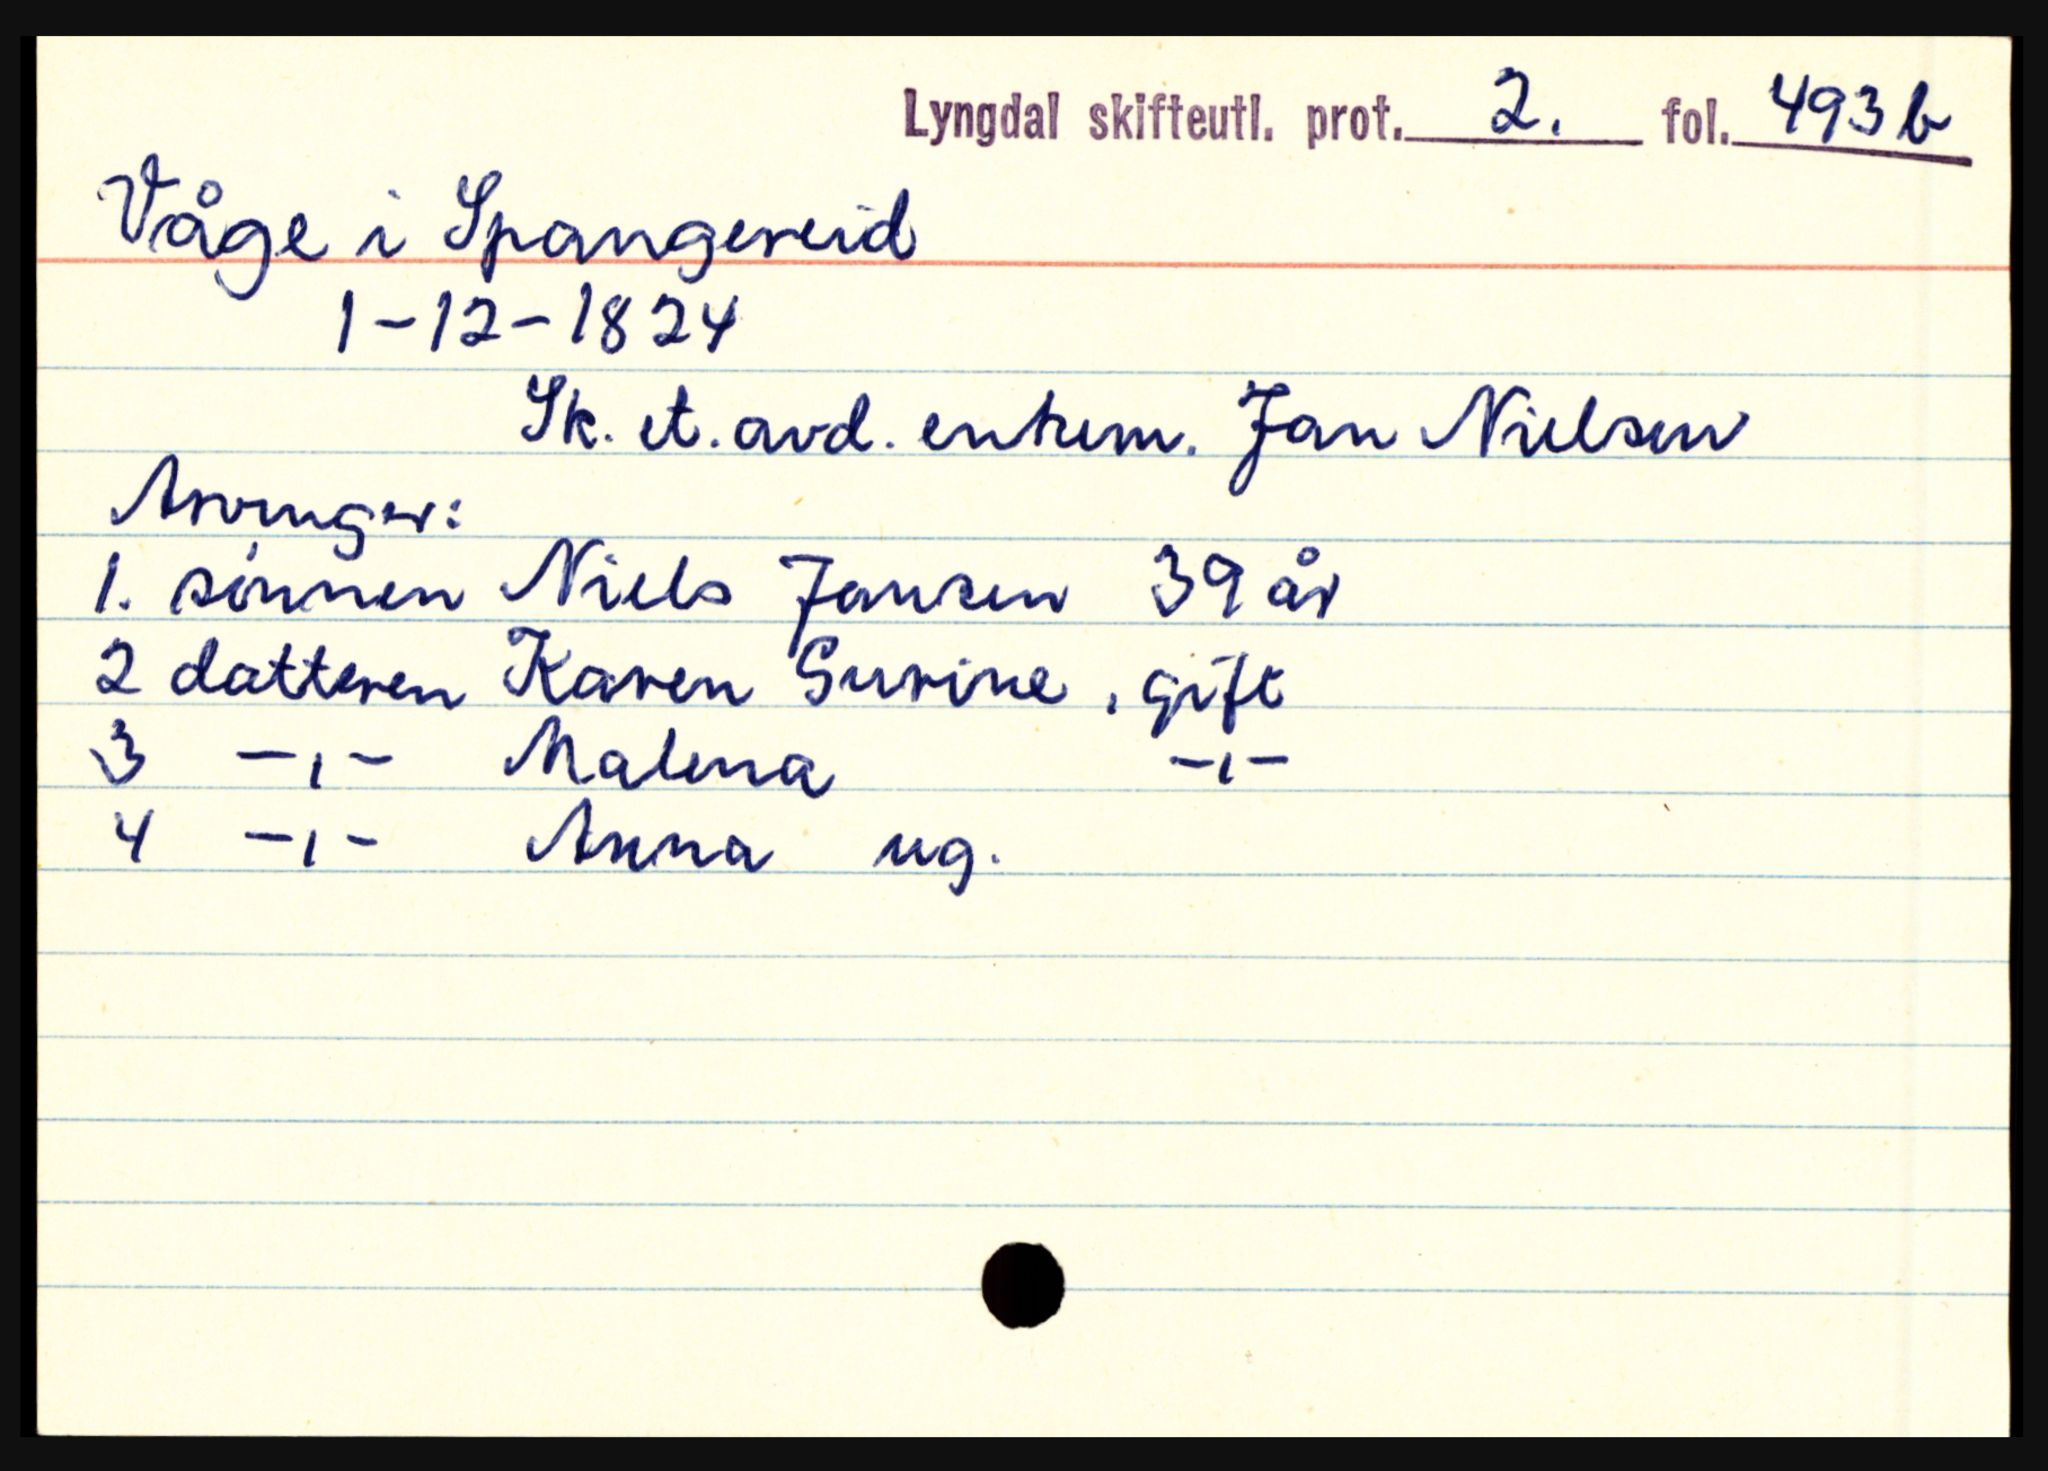 Lyngdal skifteutl. prot. 2. fol. 493 b
Våge i Spangereid
1-12-1824
Sk. et. avd. enkem. Jan Nielsen
Arvinger:
1. sønnen Niels Jansen 39 år
2 datteren Karen Surine, gift
3 -,- Malena -,-
4 -,- Anna ug.